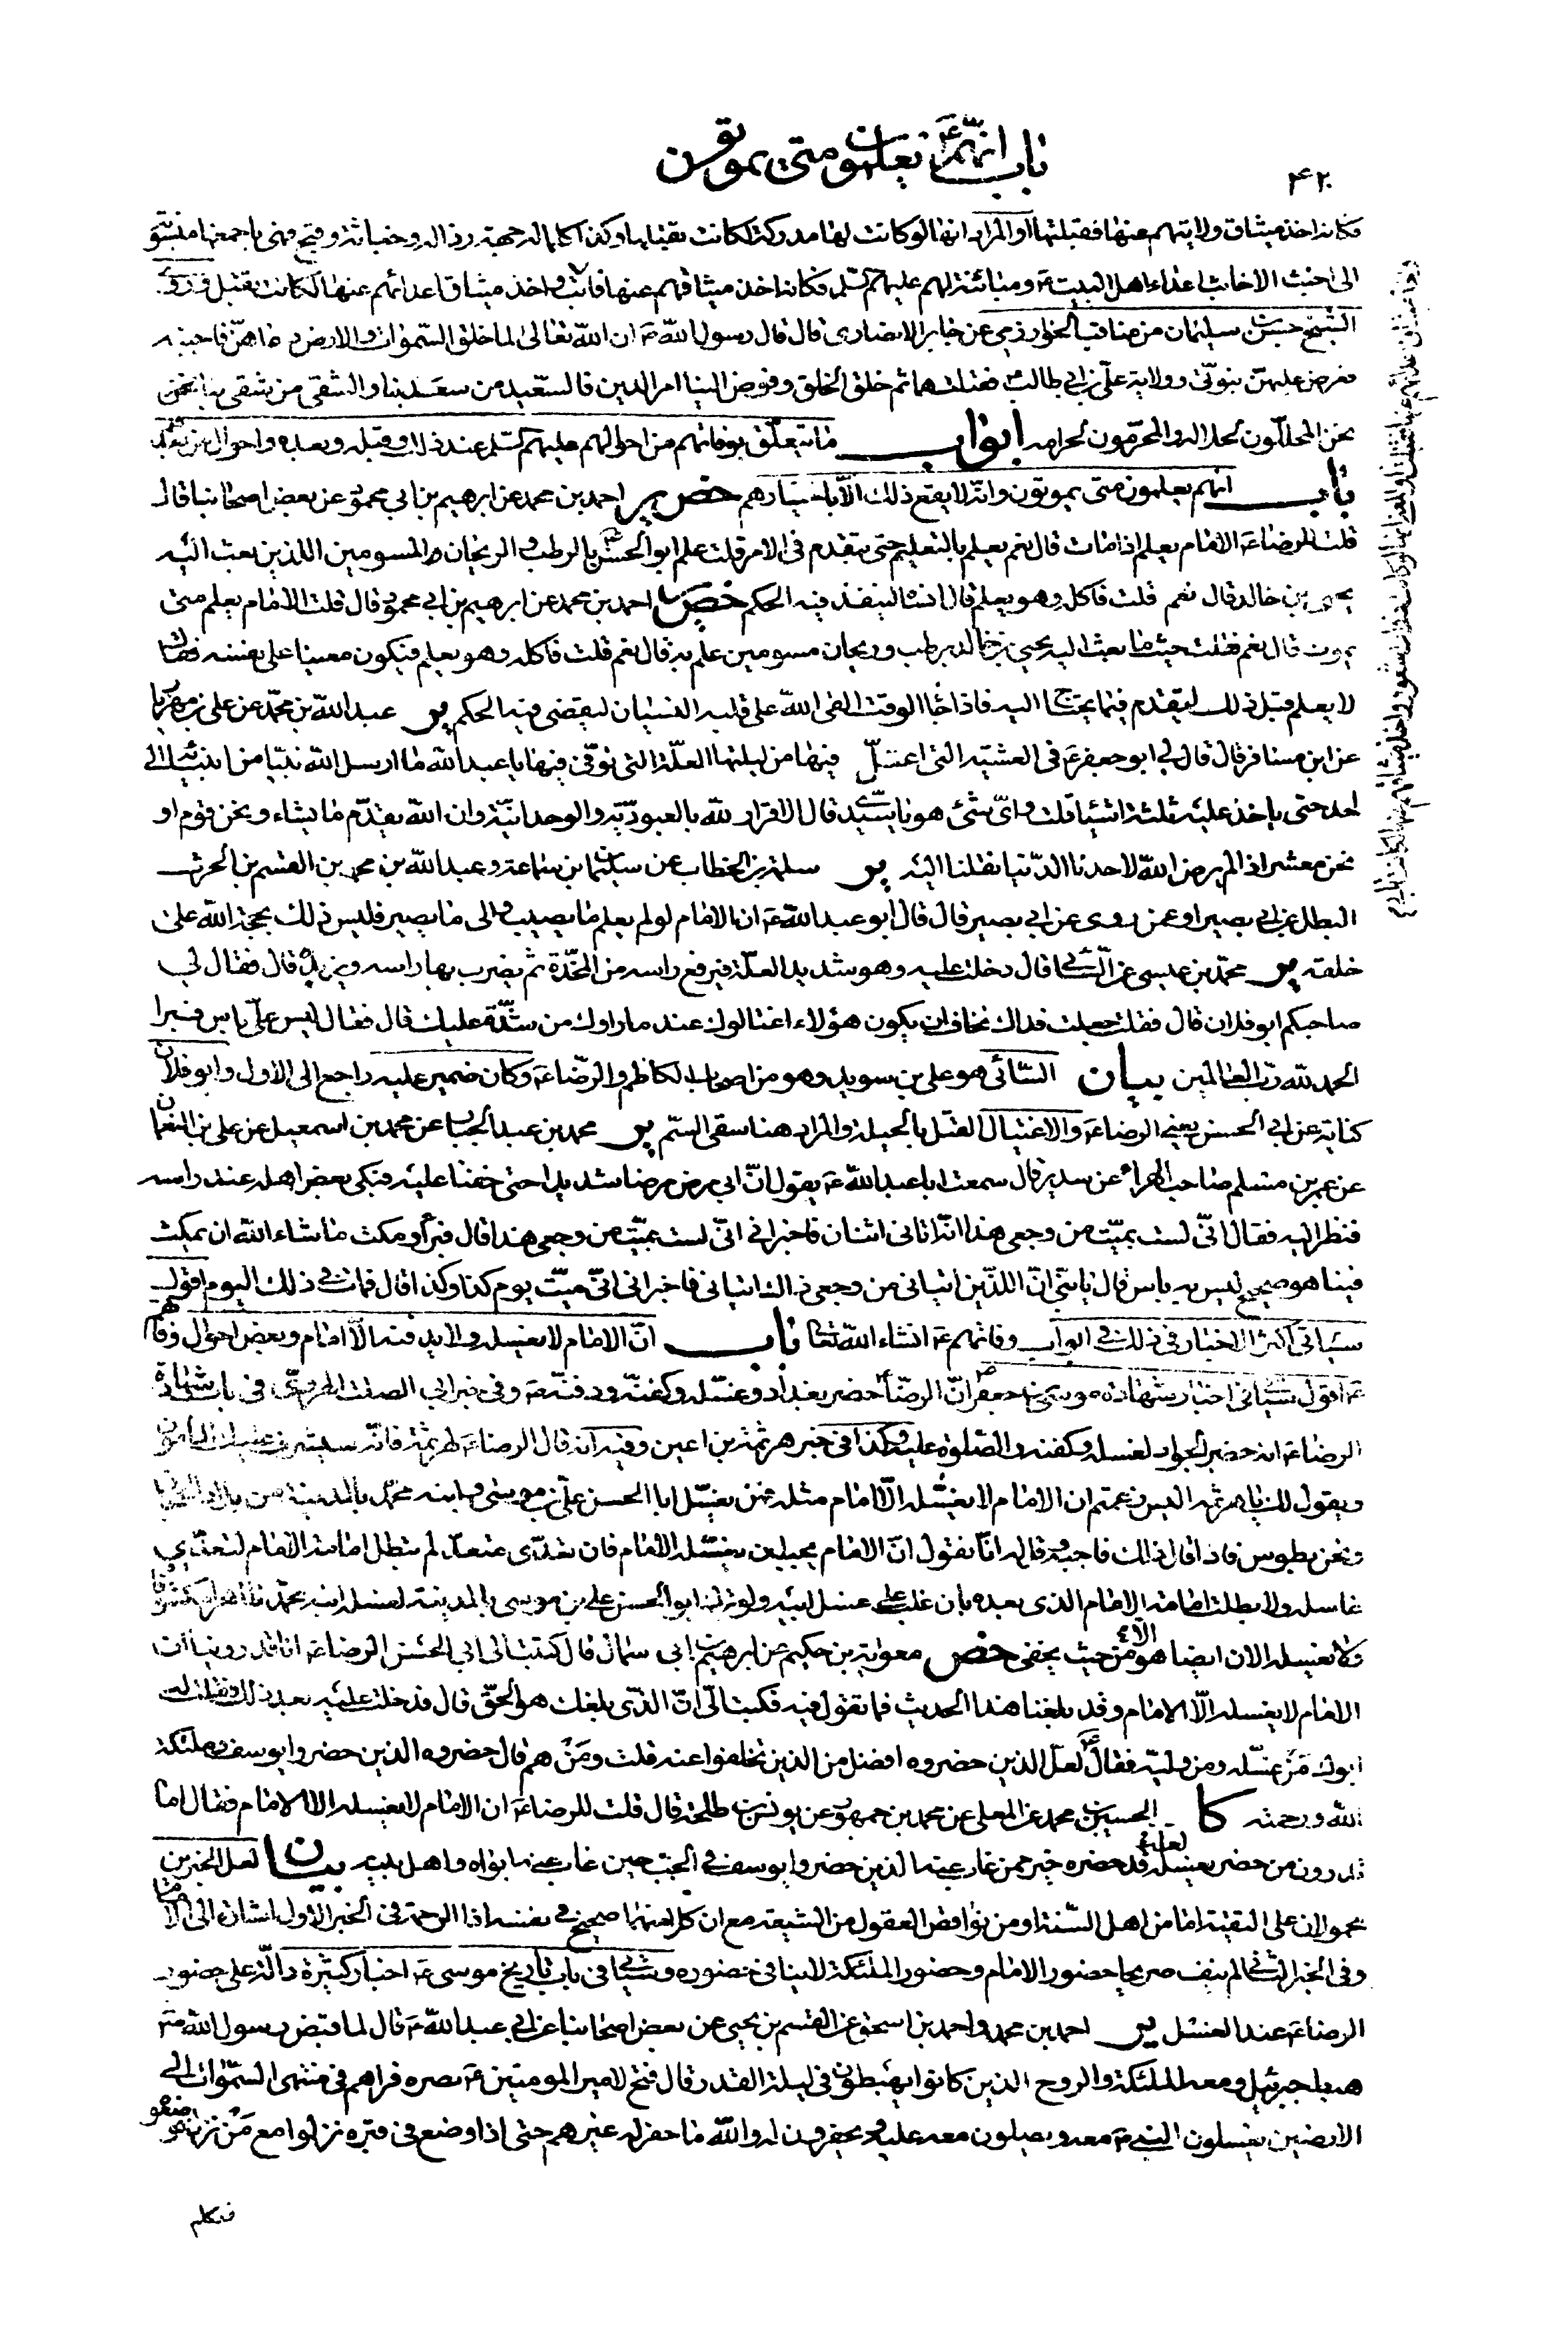 باب انهم ع يعلمون متى يموتون
۴۲۰
فكانه اخذ ميثاق ولايتهم عنها فقبلتها او المراد انها لو كانت لها مدركة لكانت تقبلها وكذا كلما له جهة رذالة وخباثة وقبح فهي باجمعها منسوبة
الى اخبث الاخابث اعداء اهل البيت ع ومباينة لهم عليهم السلم فكانه اخذ ميثاقهم عنها فابت واخذ ميثاق اعدائهم عنها لكانت تقبل وروى
الشيخ حسن بن سليمان من مناقب الخوارزمي عن جابر الانصارى قال قال رسول الله ص ان الله تعالى لما خلق السموات والارض دعاهن فاجبنه
فعرض عليهن نبوتى وولاية على بن ابي طالب فقبلتهما ثم خلق الخلق وفوض الينا امر الدين فالسعيد من سعد بنا والشقى من شقى بنا نحن
نحن المحللون لحلاله والمحرمون لحرامه ابواب ما يتعلق بوفاتهم من احوالهم عليهم السلم عند ذلك وقبله وبعده واحوال من بعدهم
باب انهم يعلمون متى يموتون وانه لا يقع ذلك الا باختيارهم خص ير احمد بن محمد عن ابرهيم بن ابي محمود عن بعض اصحابنا قال
قلت للرضا ع الامام يعلم اذا مات قال نعم يعلم بالتعليم حتى يتقدم فى الامر قلت علم ابو الحسن ع بالرطب والريحان المسمومين اللذين بعث اليه
يحيى بن خالد قال نعم قلت فاكله وهو يعلم قال انساه لينفذ فيه الحكم خص ير احمد بن محمد عن ابرهيم بن ابي محمود قال قلت الامام يعلم متى
يموت قال نعم فقلت حيث ما بعث اليه يحيى بن خالد برطب وريحان مسمومين علم به قال نعم قلت فاكله وهو يعلم فيكون معينا على نفسه فقال
لا يعلم قبل ذلك ليتقدم فيما يحتاج اليه فاذا جاء الوقت القى الله على قلبه النسيان ليقضى فيه الحكم ير عبد الله بن محمد عن على بن مهزيار
عن ابن مسافر قال قال لي ابو جعفر ع فى العشية التى اعتل فيها من ليلتها العلة التى توفى فيها يا عبد الله ما ارسل الله نبيا من انبيائه الى
احد حتى ياخذ عليه ثلثة اشياء قلت واى شئ هو يا سيدى قال الاقرار لله بالعبودية والوحدانية وان الله يقدم ما يشاء ونحن قوم او
نحن معشر اذا لم يرض الله لاحدنا الدنيا نقلنا اليه ير سلمة بن الخطاب عن سليمان بن سماعة وعبد الله بن محمد بن القسم بن الحرث
البطل عن ابي بصير او عمن روى عن ابي بصير قال قال ابو عبد الله ع ان الامام لو لم يعلم ما يصيبه والى ما يصير فليس ذلك بحجة الله على
خلقه ير محمد بن عيسى عن السائى قال دخلت عليه وهو شديد العلة فيرفع راسه من المخدة ثم يضرب بها راسه ويزبد قال فقال لي
صاحبكم ابو فلان قال فقلت جعلت فداك نخاف ان يكون هؤلاء اغتالوك عند ما راوك من شدة عليك قال فقال ليس على باس فبرا
الحمد لله رب العالمين بيان السائى هو على بن سويد وهو من اصحاب الكاظم والرضا ع وكان ضمير عليه راجع الى الاول وابو فلان
كناية عن ابي الحسن يعنى الرضا ع والاغتيال القتل بالحيلة والمراد هنا سقى السم ير محمد بن عبد الجبار عن محمد بن اسمعيل عن على بن النعمان
عن عمر بن مسلم صاحب الهراء عن سدير قال سمعت ابا عبد الله ع يقول ان ابي مرض مرضا شديدا حتى خفنا عليه فبكى بعض اهله عند راسه
فنظر اليه فقال انى لست بميت من وجعى هذا انه اتانى اثنان فاخبرانى انى لست بميت من وجعى هذا قال فبرأ ومكث ما شاء الله ان يمكث
فبينا هو صحيح ليس به باس قال يا بنى ان اللذين اتيانى من وجعى ذاك اتيانى فاخبرانى انى ميت يوم كذا وكذا قال فمات فى ذلك اليوم اقول
سياتى اكثر الاخبار فى ذلك فى ابواب وفاتهم ع انشاء الله تعالى باب ان الامام لا يغسله ولا يدفنه الا امام وبعض احوال وفاتهم
ع اقول سياتى اخبار شهادة موسى بن جعفر ص ان الرضا ع حضر بغداد وغسله وكفنه ودفنه ع وفى خبر ابي الصلت الهروى فى باب شهادة
الرضا ع انه حضر الجواد لغسله وكفنه والصلوة عليه وكذا فى خبر هرثمة بن اعين وفيه انه قال الرضا ع لهرثمة فانه سيشرف عليك المأمون
ويقول لك يا هرثمة اليس زعمتم ان الامام لا يغسله الا امام مثله فمن يغسل ابا الحسن على بن موسى وابنه محمد بالمدينة من بلاد الحجاز
ونحن بطوس فاذا قال ذلك فاجبه وقل له انا نقول ان الامام يجب ان يغسله الامام فان تعدى متعد لم تبطل امامة الامام لتعدي
غاسله ولا بطلت امامة الامام الذى بعده بان غلب على غسل ابيه ولو ترك ابو الحسن على بن موسى بالمدينة لغسله ابنه محمد ظاهرا مكشوفا
ولا يغسله الان ايضا الا هو من حيث يخفى خص معوية بن حكيم عن ابرهيم بن ابي سمال قال كتبت الى ابي الحسن الرضا ع انا قد روينا ان
الامام لا يغسله الا الامام وقد بلغنا هذا الحديث فما تقول فيه فكتب الى ان الذى بلغك هو الحق قال فدخلت عليه بعد ذلك فقلت له
ابوك من غسله ومن وليه فقال لعل الذين حضروه افضل من الذين تخلفوا عنه قلت ومن هم قال حضروه الذين حضروا يوسف ملئكة
الله ورحمته كا الحسين بن محمد عن المعلى عن محمد بن جمهور عن يونس بن طلحة قال قلت للرضا ع ان الامام لا يغسله الا الامام فقال اما
تدرون من حضر يغسله لعله قد حضره خير ممن غاب عنه الذين حضروا يوسف فى الجب حين غاب عنه ابواه واهل بيته بيان لعل الخبرين
محمولان على التقية اما من اهل السنة او من نواقص العقول من الشيعة مع ان كلا منهما صحيح فى نفسه اذ الرحمة فى الخبر الاول اشارة الى الامام
وفى الخبر الثانى لم ينف صريحا حضور الامام وحضور الملئكة لا ينافى حضوره وسياتى فى باب تاريخ موسى ع اخبار كثيرة دالة على حضور
الرضا ع عند الغسل ير احمد بن محمد واحمد بن اسحق عن القسم بن يحيى عن بعض اصحابنا عن ابي عبد الله ع قال لما قبض رسول الله ص
هبط جبرئيل ومعه الملئكة والروح الذين كانوا يهبطون فى ليلة القدر قال ففتح لامير المومنين ع بصره فراهم فى منتهى السموات الى
الارضين يغسلون النبى ص معه ويصلون معه عليه ويحفرون له والله ما حفر له غيرهم حتى اذا وضع فى قبره نزلوا مع من نزل فوضعوه
فتكلم